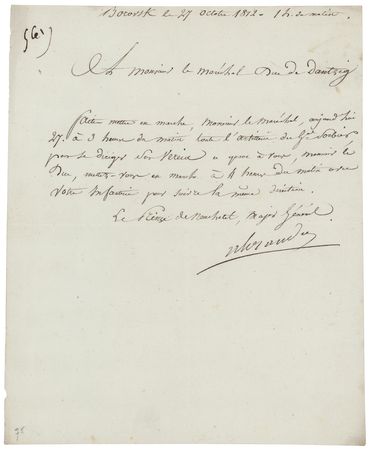 Borowsk le 27 octobre 1812 - 1 h. du matin.
A Monsieur le maréchal Duc de Dantzig
faites mettre en marche, Monsieur le maréchal, aujourd'hui
27. à 3 heures du matin toute l'artillerie du Gal Sorbier
pour se diriger sur Vereia et quant à vous, monsieur le
Duc, mettez-vous en marche à 4 heures du matin avec
votre Infanterie pour suivre la même direction.
Le Prince de Neuchatel, Major Général.
Alexandre